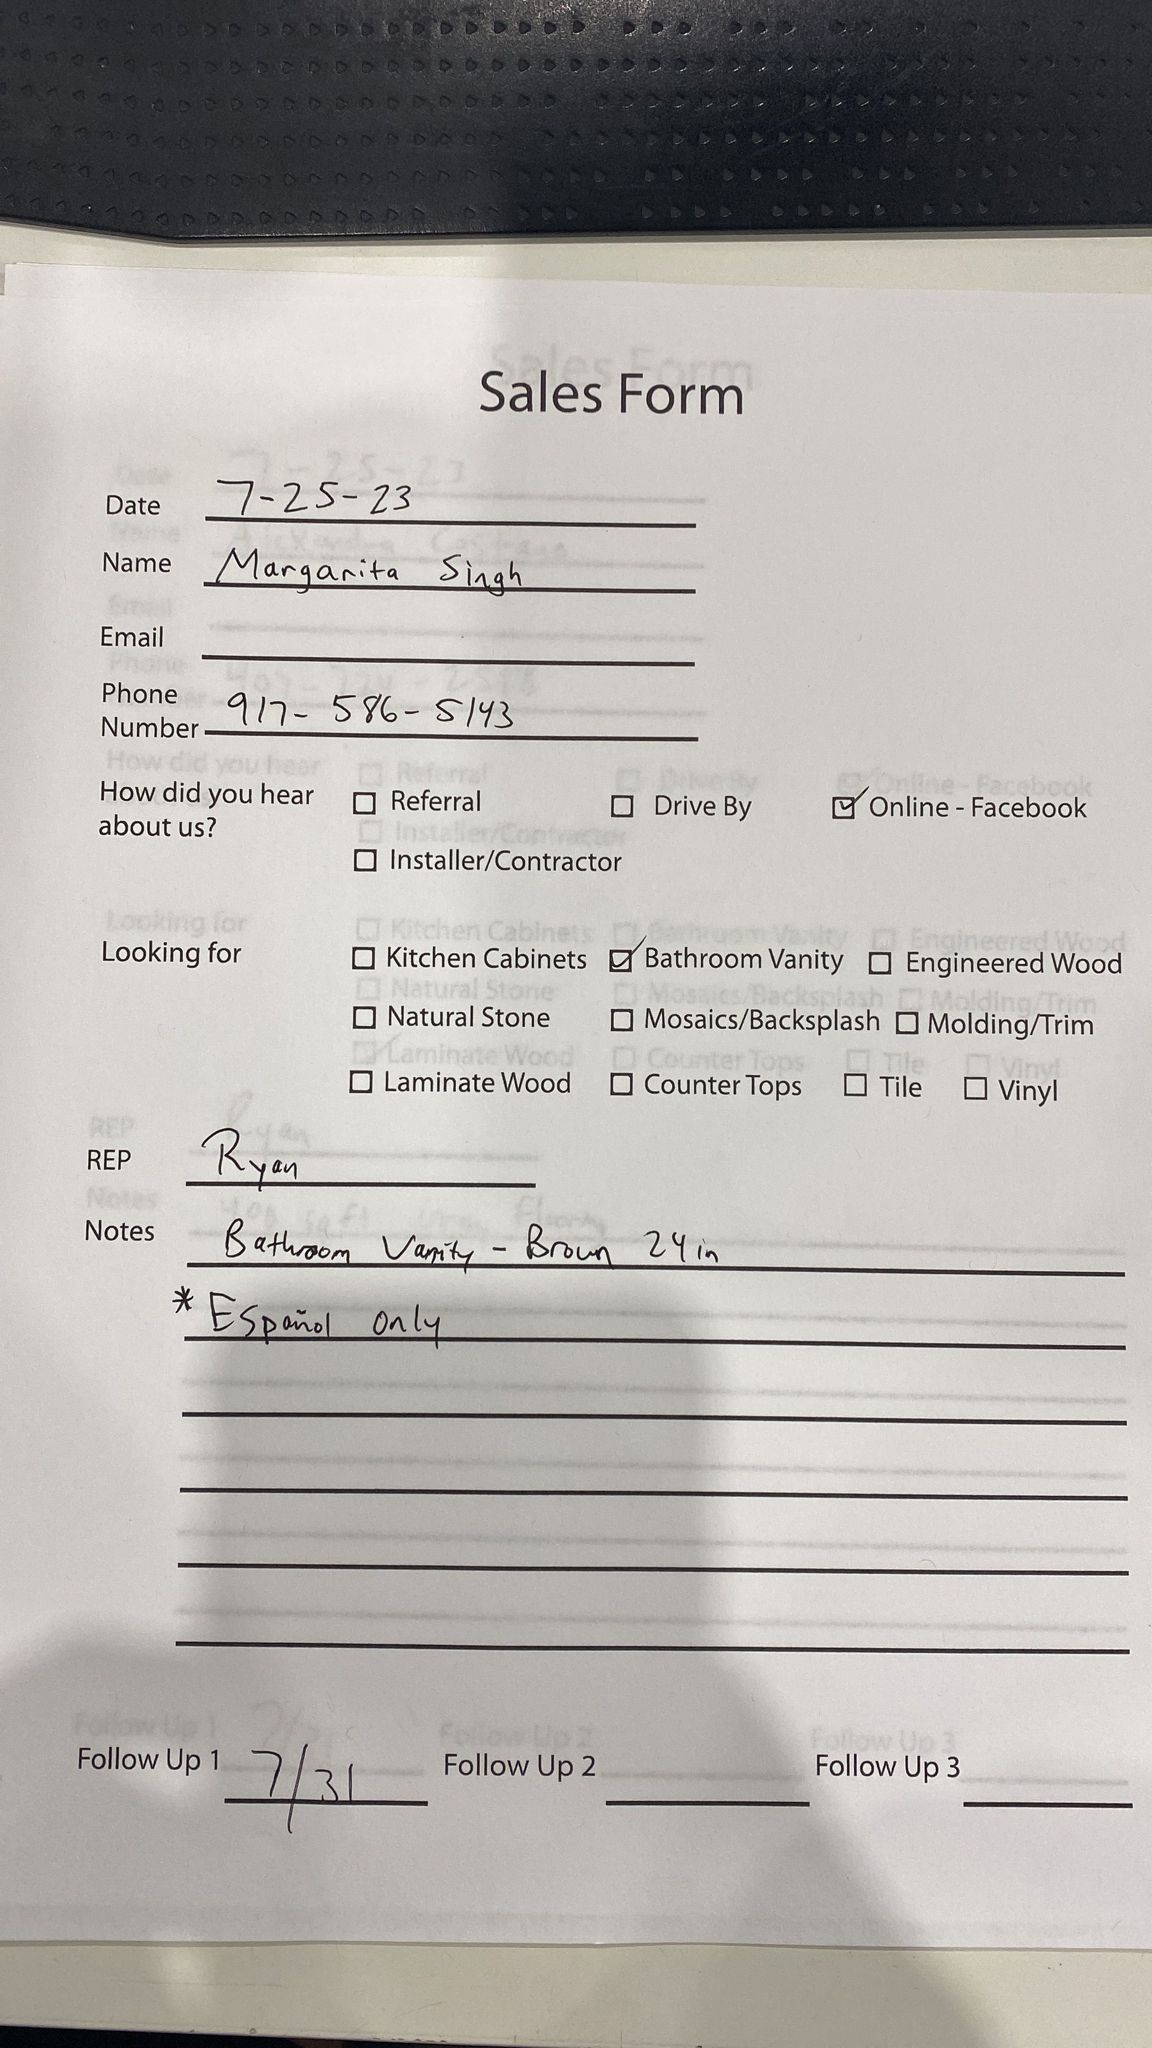 Sales Form
Date 7-25-23
Name Margarita Singh
Email
Phone
Number 917-586-5143
How did you hear
about us?
☐ Referral ☐ Drive By ☑ Online - Facebook
☐ Installer/Contractor
Looking for ☐ Kitchen Cabinets ☑ Bathroom Vanity ☐ Engineered Wood
☐ Natural Stone ☐ Mosaics/Backsplash ☐ Molding/Trim
☐ Laminate Wood ☐ Counter Tops ☐ Tile ☐ Vinyl
REP Ryan
Notes Bathroom Vanity - Brown 24in
* Español only
Follow Up 1 7/31 Follow Up 2 Follow Up 3